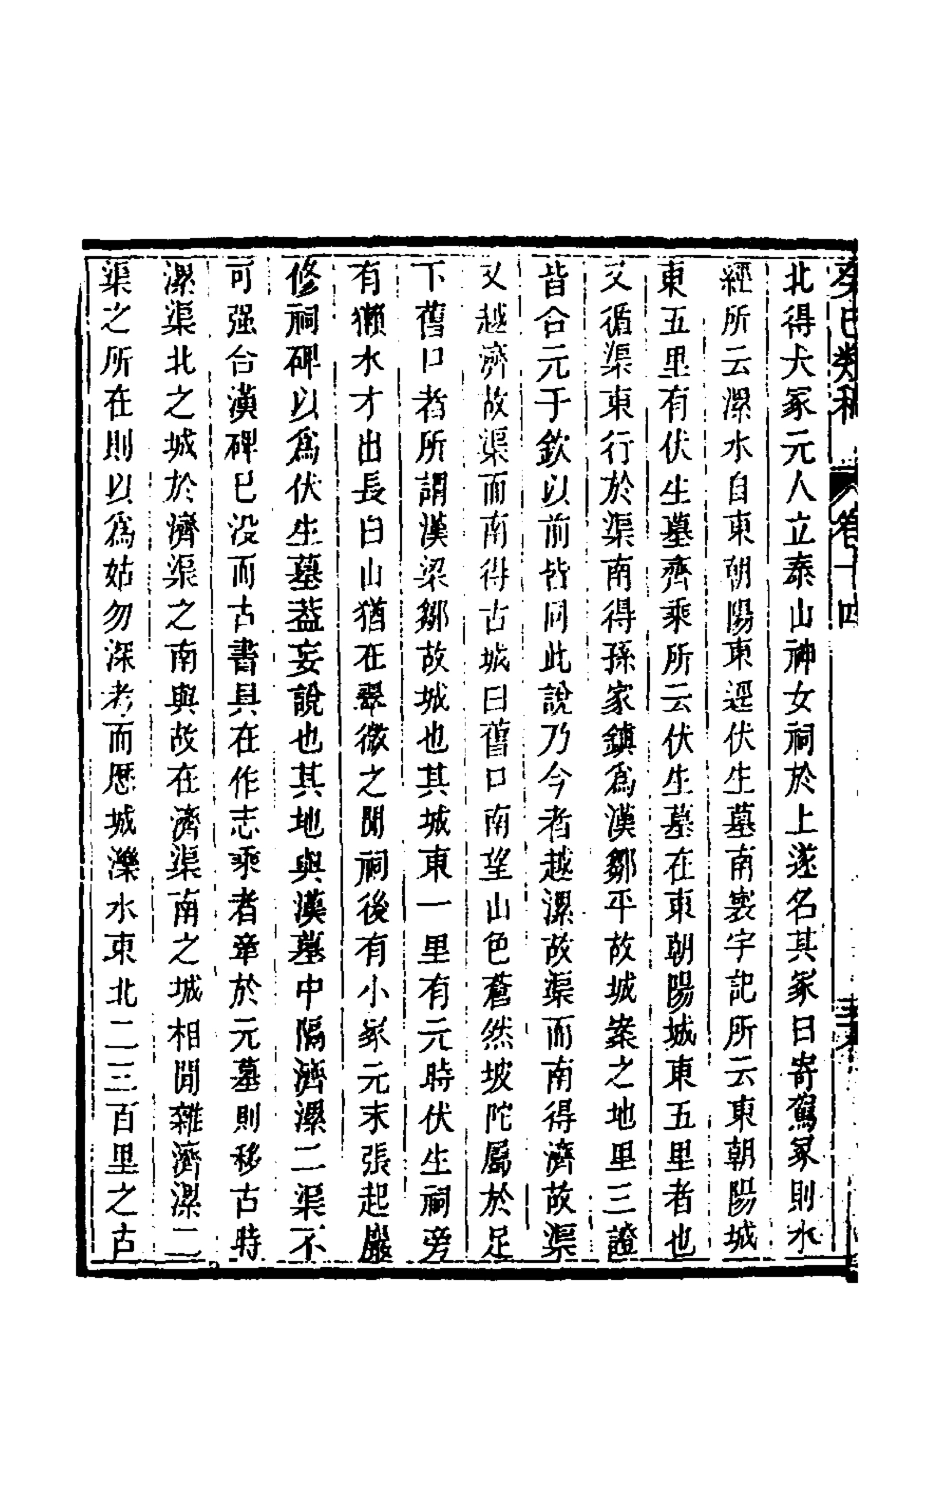 癸巳類稿 卷十四
北得大冢元人立泰山神女祠於上遂名其冢曰寄駕冢則水
經所云漯水自東朝陽東逕伏生墓南寰宇記所云東朝陽城
東五里有伏生墓齊乘所云伏生墓在東朝陽城東五里者也
又循渠東行於渠南得孫家鎮爲漢鄒平故城案之地里三證
皆合元于欽以前皆同此說乃今者越漯故渠而南得濟故渠
又越濟故渠而南得古城曰舊口南望山色蒼然坡陀屬於足
下舊口者所謂漢梁鄒故城也其城東一里有元時伏生祠旁
有獺水才出長白山猶在翠微之閒祠後有小冢元末張起巖
修祠碑以爲伏生墓葢妄說也其地與漢墓中隔濟漯二渠不
可强合漢碑已没而古書具在作志乘者章於元墓則移古時
漯渠北之城於濟渠之南與故在濟渠南之城相閒雜濟漯二
渠之所在則以爲姑勿深考而歷城濼水東北二三百里之古